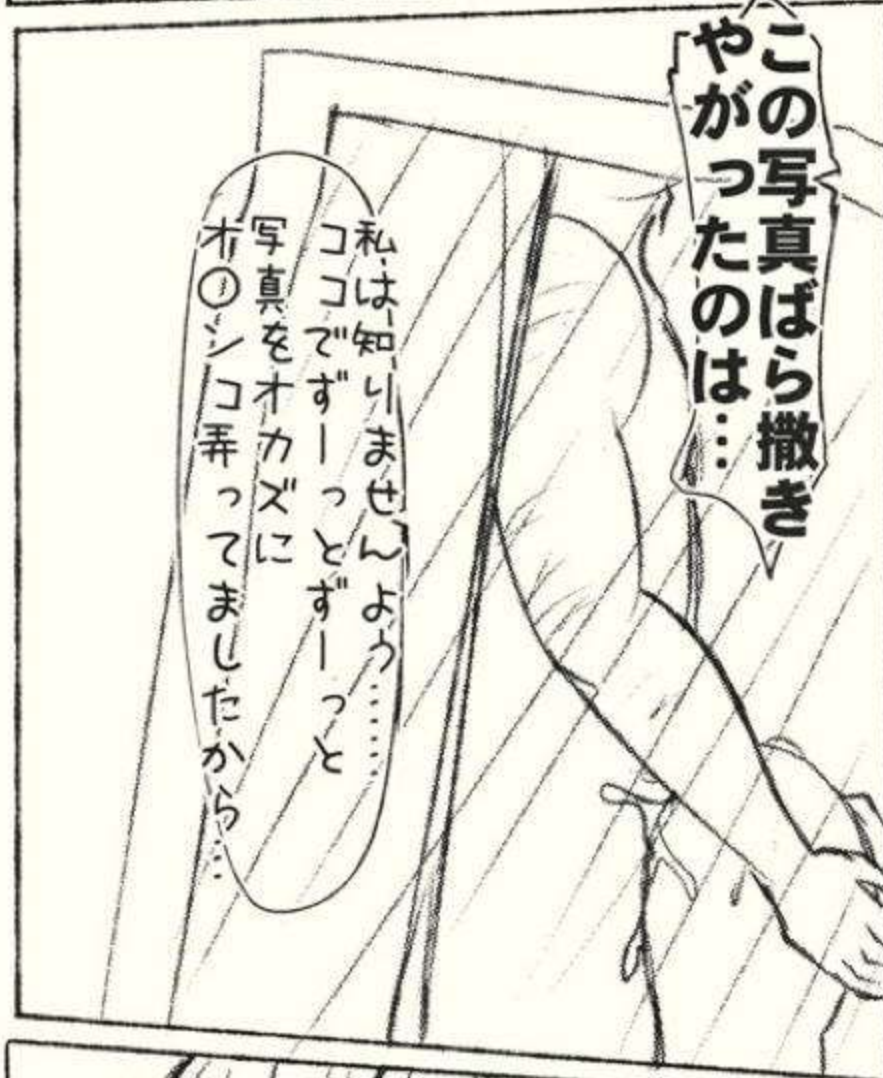 この写真ばら撒き
やがったのは…
私は知りませんよぅ………
ココでずーっとずーっと
写真をオカズに
オ○ンコ弄ってましたから…